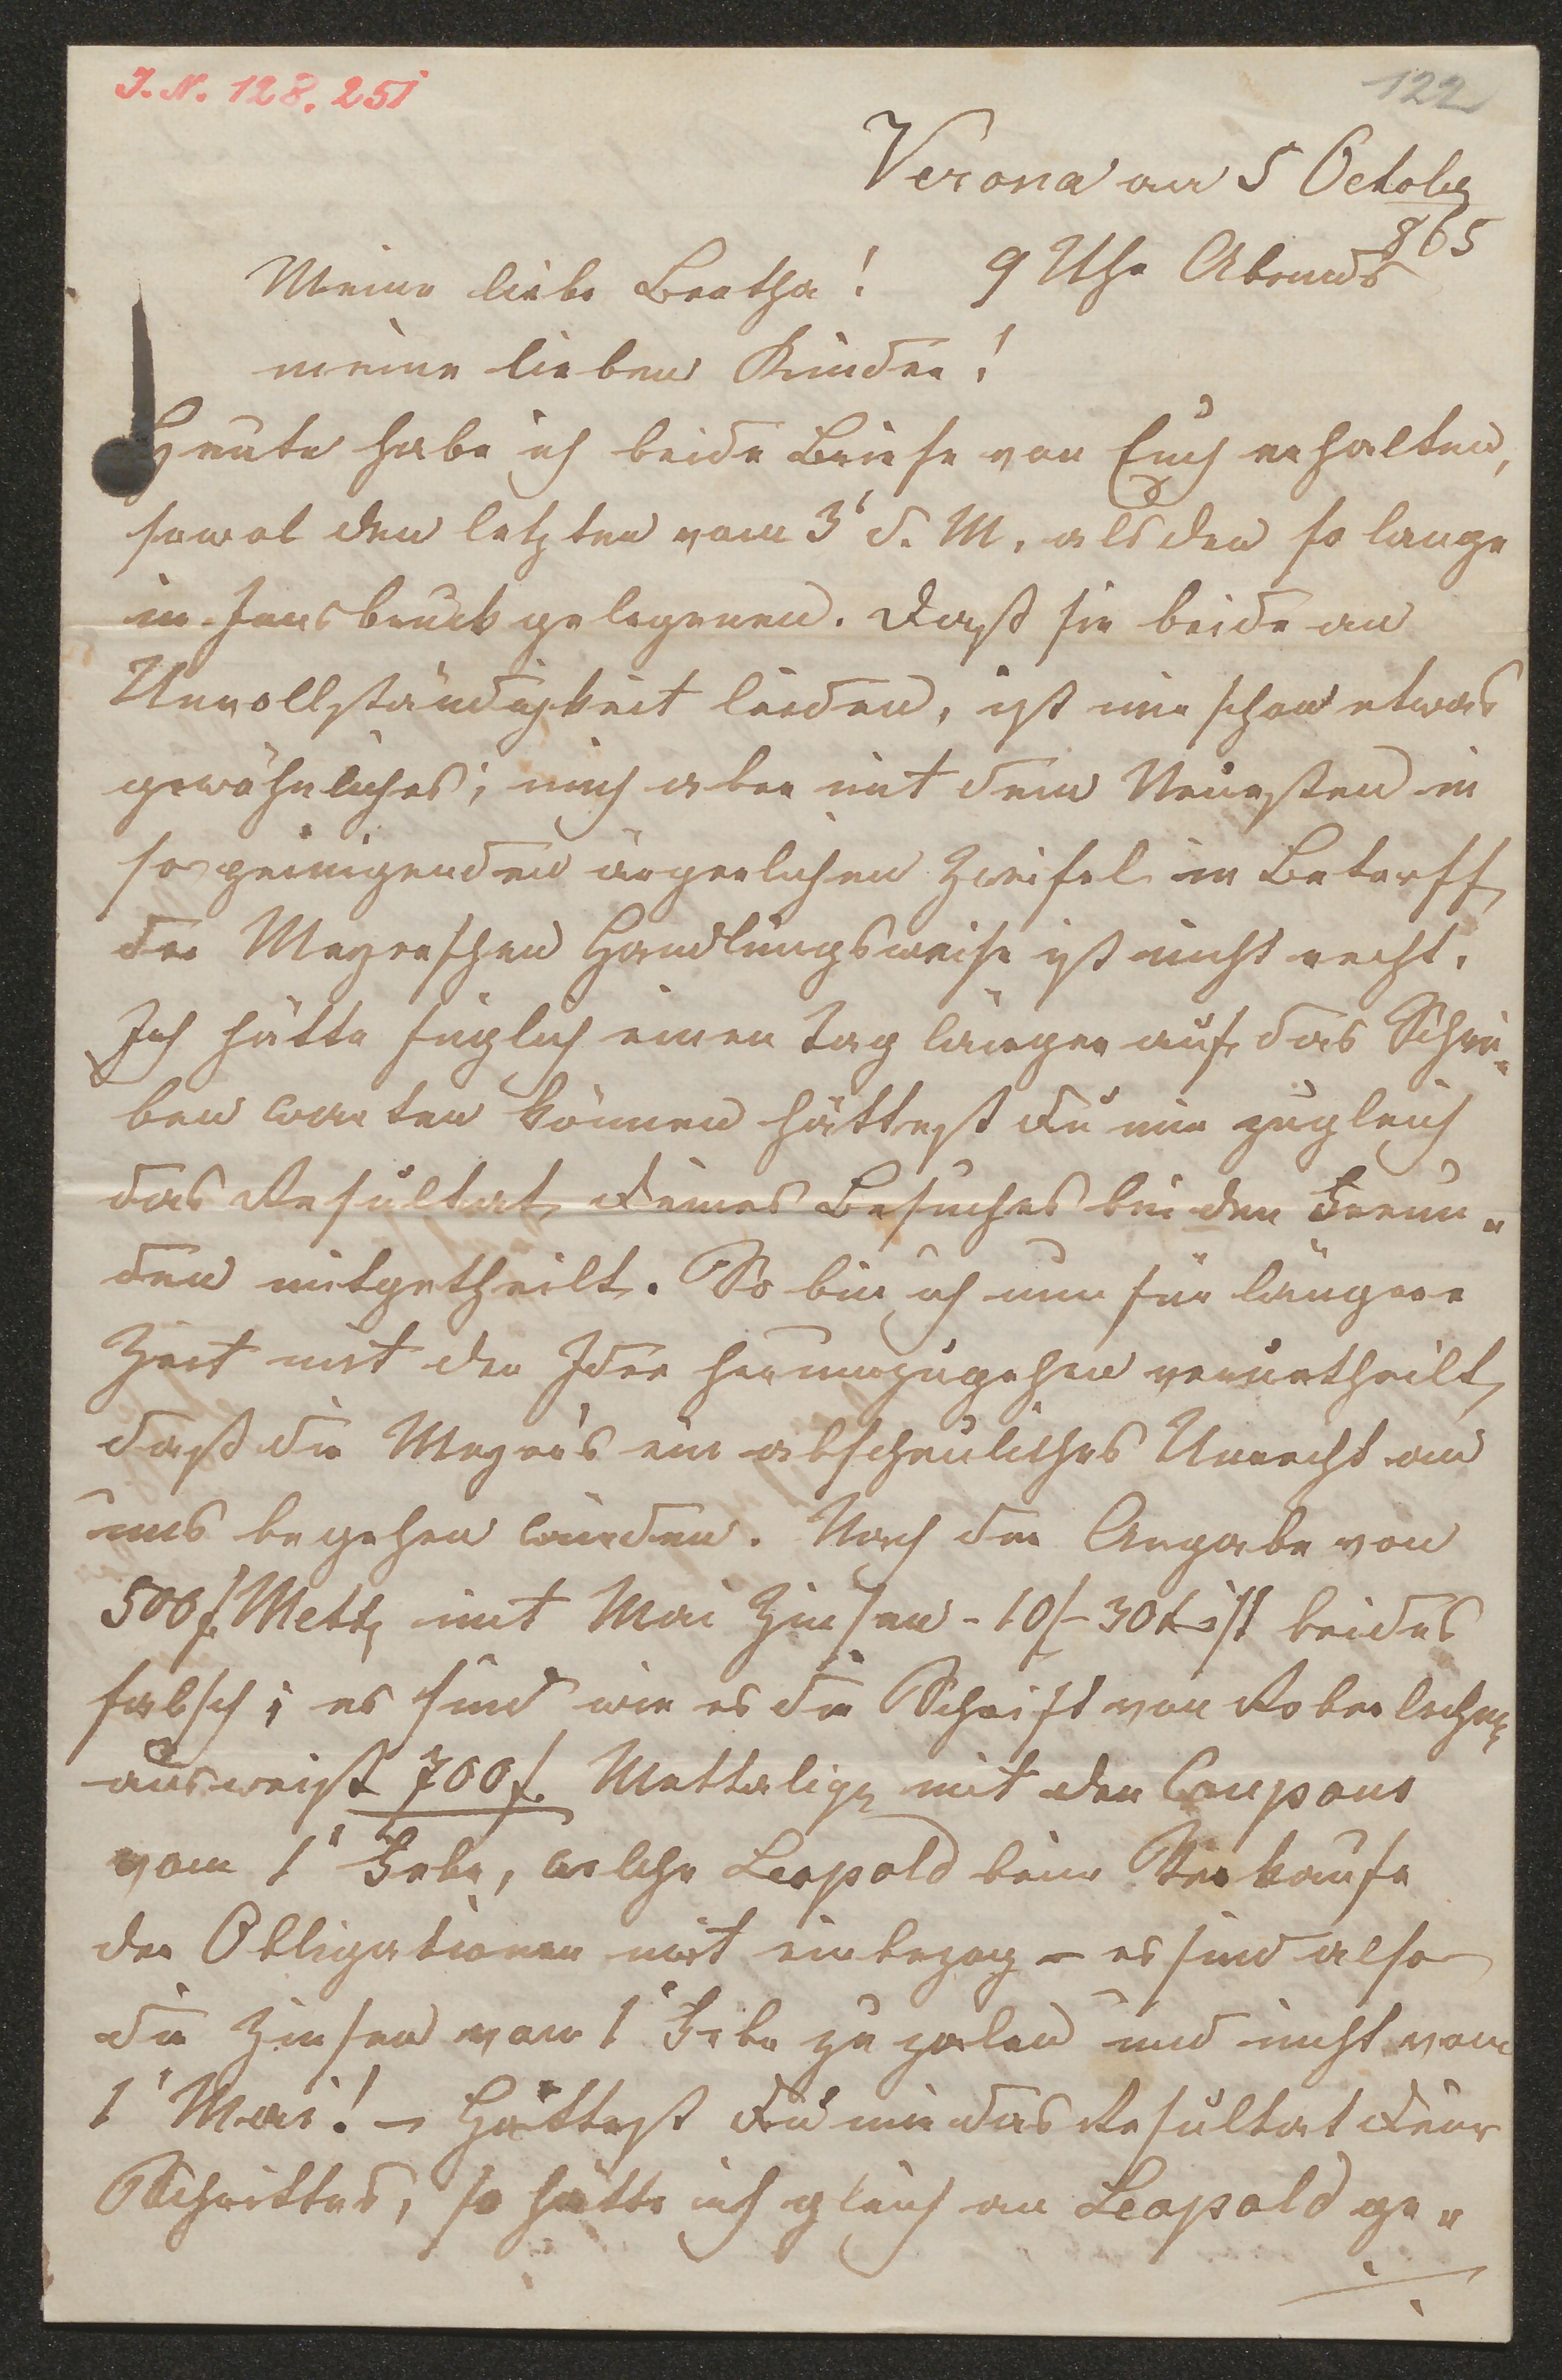 I. N. 128.251
122
Verona am 5 October
865
Meine liebe Bertha! 9 Uhr Abends
meine lieben Kinder!
Heute habe ich beide Briefe von Euch erhalten,
sowol den letzten vom 3t d. M. als den so lange
in Insbruck gelegenen. Daß sie beide an
Unvollständigkeit leiden, ist mir schon etwas
gewöhnliches; mich aber mit dem Neuesten in
so peinigenden ärgerlichen Zweifel in Betreff
der Mayerschen Handlungsweise ist nicht recht.
Ich hätte füglich einen Tag länger auf das Schrei-
ben warten können hättest Du mir zugleich
das Resultat Deines Besuches bei den Freun-
den mitgetheilt. So bin ich nun für längere
Zeit mit der Idee herumzugehen verurtheilt,
daß die Mayer's ein abscheuliches Unrecht an
uns begehen würden. Nach der Angabe von
500 f. Mett mit Mai Zinsen - 10 f - 30 x ist beides
falsch; es sind wie es die Schrift von
ausweist 700 f. Mettaliq mit den Coupons
vom 1t Febr, welche Leopold beim Verkaufe
der Obligationen mit einbezog - es sind also
die Zinsen vom 1t Febr zu zalen und nicht vom
1t Mai! - Hättest Du mir das Resultat Deines
Schrittes, so hätte ich gleich an Leopold ge-
./.